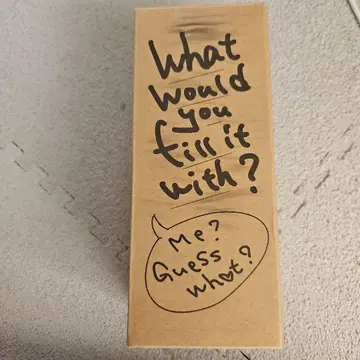 What
would
you
fill it
with?
Me?
Guess
what?